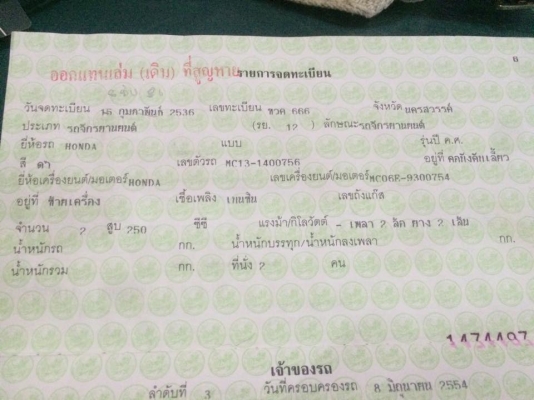 8
ออกแทนเล่ม (เดิม) ที่สูญหาย รายการจดทะเบียน
วันจดทะเบียน 16 กุมภาพันธ์ 2536 เลขทะเบียน ขวค 666 จังหวัด นครสวรรค์
ประเภท รถจักรยานยนต์ (รย. 12 ) ลักษณะ รถจักรยานยนต์
ยี่ห้อรถ HONDA แบบ รุ่นปี ค.ศ.
สี ดำ เลขตัวรถ MC13-1400756 อยู่ที่ คอถังคอเลี้ยว
ยี่ห้อเครื่องยนต์/มอเตอร์ HONDA เลขเครื่องยนต์/มอเตอร์ MC06E-9300754
อยู่ที่ ข้างเครื่อง เชื้อเพลิง เบนซิน เลขถังแก๊ส
จำนวน 2 สูบ 250 ซีซี แรงม้า/กิโลวัตต์ - เพลา 2 ล้อ ยาง 2 เส้น
น้ำหนักรถ กก. น้ำหนักบรรทุก/น้ำหนักลงเพลา กก.
น้ำหนักรวม กก. ที่นั่ง 2 คน
1474497
เจ้าของรถ
ลำดับที่ 3 วันที่ครอบครองรถ 8 มิถุนายน 2554